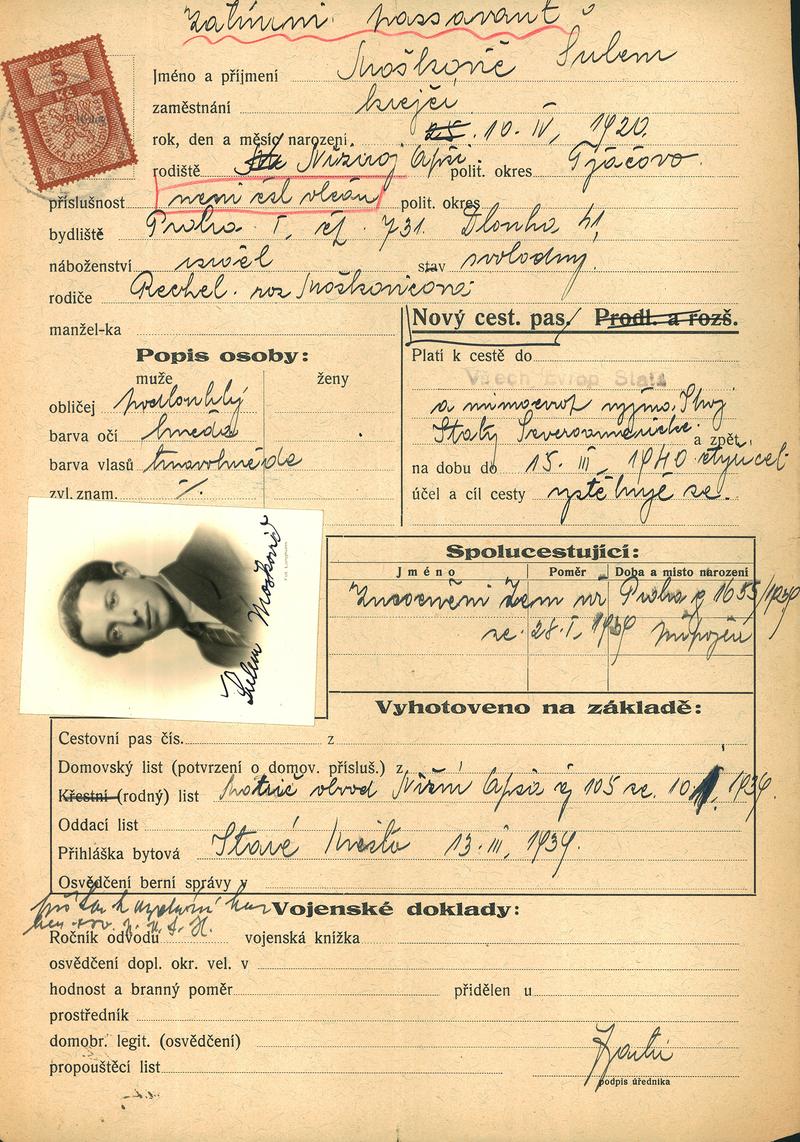 Zatímní passavant
5
Kč
Jméno a příjmení Moškovič Sulem
zaměstnání krejčí
rok, den a měsíc narození 10. IV. 1920.
rodiště Nižní Apši polit. okres Tjačovo
příslušnost není čsl občan polit. okres
bydliště Praha I, čp. 731. Dlouhá 41,
náboženství israel stav svobodný.
rodiče Rechel. roz Moškovičová
manžel-ka
Nový cest. pas. Prodl. a rozš.
Popis osoby:
muže ženy
obličej podlouhlý
barva očí hnědá
barva vlasů tmavohnědá
zvl. znam. ·/.
Platí k cestě do
Všech Evrop Států
a mimoevrop vyjma Spoj
Státy Severoamerické. a zpět
na dobu do 15. III, 1940
účel a cíl cesty vystěhuje se.
Sulem Moskovič
Spolucestující:
Jméno Poměr Doba a místo narození
Praha
se. 28. I. 1939
Vyhotoveno na základě:
Cestovní pas čís. z
Domovský list (potvrzení o domov. přísluš.) z
Křestní (rodný) list Matrič obvod Nižní Apša čj 105 ze. 10 1939.
Oddací list
Přihláška bytová Staré Město 13. III, 1939.
Osvědčení berní správy v
Vojenské doklady:
Ročník odvodu vojenská knížka
osvědčení dopl. okr. vel. v
hodnost a branný poměr přidělen u
prostředník
domobr. legit. (osvědčení)
propouštěcí list
podpis úředníka